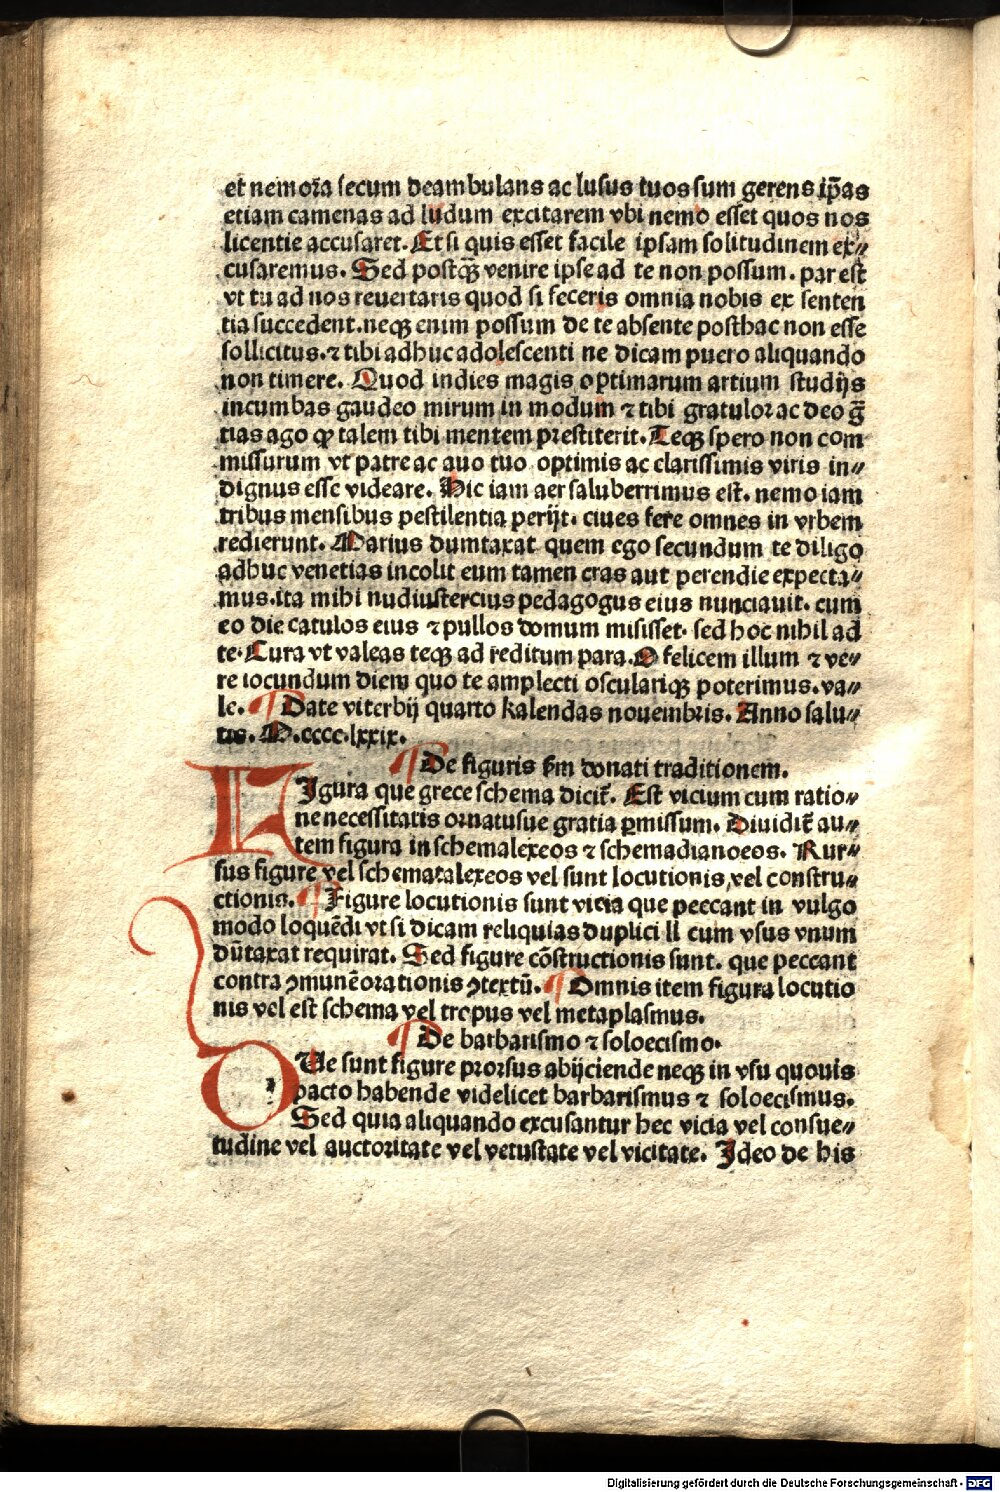 et nemor̃a secum deambulans ac lusus tuos sum gerens ip̃as
etiam camenas ad ludum excitarem vbi nemo esset quos nos
licentie accusaret. Et si quis esset facile ipsam solitudinem ex⸗
cusaremus. Sed postq̃ venire ipse ad te non possum. par est
vt tu ad nos reuertaris quod si feceris omnia nobis ex senten
tia succedent. neqꝫ enim possum de te absente posthac non esse
sollicitus. ⁊ tibi adhuc adolescenti ne dicam puero aliquando
non timere. Quod indies magis optimarum artium studijs
incumbas gaudeo mirum in modum ⁊ tibi gratulor ac deo g̃
tias ago ꝙ talem tibi mentem prestiterit. Teqꝫ spero non com
missurum vt patre ac auo tuo optimis ac clarissimis viris in⸗
dignus esse videare. Hic iam aer saluberrimus est. nemo iam
tribus mensibus pestilentia perijt. ciues fere omnes in vrbem
redierunt. Marius dumtaxat quem ego secundum te diligo
adhuc venetias incolit eum tamen cras aut perendie expecta⸗
mus. ita mihi nudiustercius pedagogus eius nunciauit. cum
eo die catulos eius ⁊ pullos domum misisset. sed hoc nihil ad
te. Cura vt valeas teqꝫ ad reditum para. O felicem illum ⁊ ve⸗
re iocundum diem quo te amplecti osculariqꝫ poterimus. va⸗
le. ¶ Date viterbij quarto kalendas nouembris. Anno salu⸗
tis. M.cccc.lxxix.
¶ De figuris s̃m donati traditionem.
FIgura que grece schema dicit̃. Est vicium cum ratio⸗
ne necessitatis ornatusue gratia ꝑmissum. Diuidit̃ au⸗
tem figura in schemalexeos ⁊ schemadianoeos. Rur⸗
sus figure vel schematalexeos vel sunt locutionis, vel constru⸗
ctionis. ¶ Figure locutionis sunt vicia que peccant in vulgo
modo loquẽdi vt si dicam reliquias duplici ll cum vsus vnum
dũtaxat requirat. Sed figure cõstructionis sunt. que peccant
contra ꝯmunẽ orationis ꝯtextũ. ¶ Omnis item figura locutio
nis vel est schema vel tropus vel metaplasmus.
¶ De barbarismo ⁊ soloecismo.
QVe sunt figure prorsus abijciende neqꝫ in vsu quouis
pacto habende videlicet barbarismus ⁊ soloecismus.
Sed quia aliquando excusantur hec vicia vel consue⸗
tudine vel auctoritate vel vetustate vel vicitate. Ideo de his
Digitalisierung gefördert durch die Deutsche Forschungsgemeinschaft - DFG